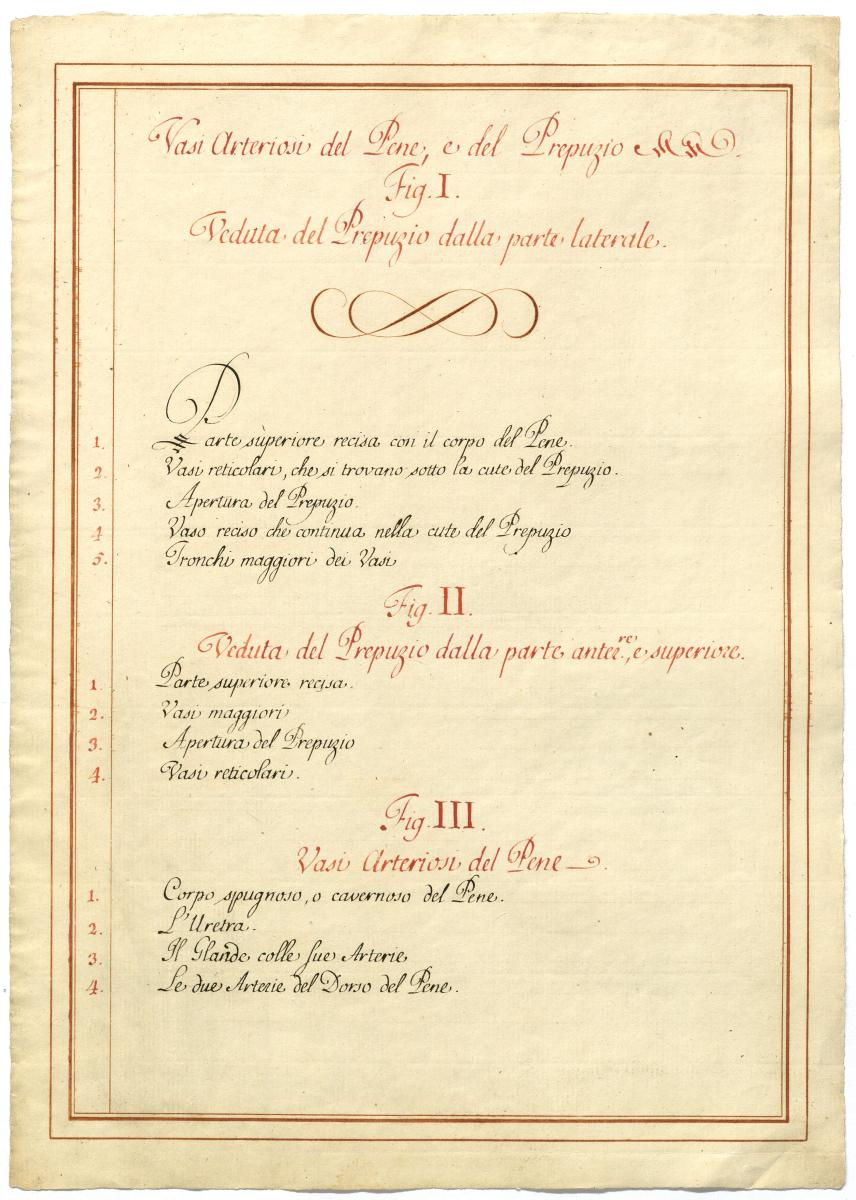 Vasi Arteriosi del Pene, e del Prepuzio
Fig. I.
Veduta del Prepuzio dalla parte laterale.
1. Parte superiore recisa con il corpo del Pene.
2. Vasi reticolari, che si trovano sotto la cute del Prepuzio.
3. Apertura del Prepuzio.
4 Vaso reciso che continua nella cute del Prepuzio
5. Tronchi maggiori dei Vasi
Fig. II.
Veduta del Prepuzio dalla parte anter.re, e superiore.
1. Parte superiore recisa.
2. Vasi maggiori
3. Apertura del Prepuzio
4. Vasi reticolari.
Fig. III.
Vasi Arteriosi del Pene
1. Corpo spugnoso, o cavernoso del Pene.
2. L'Uretra.
3. Il Glande colle sue Arterie
4. Le due Arterie del Dorso del Pene.